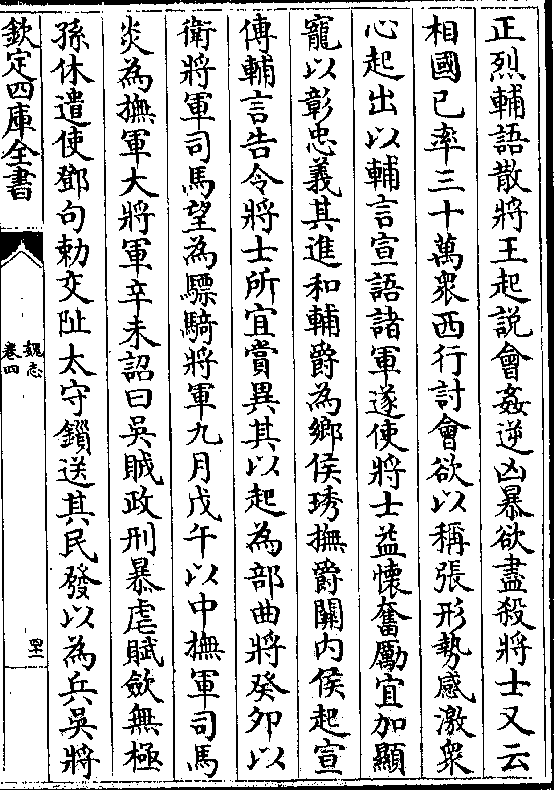 正烈輔語散將王起說會姦逆凶暴欲盡殺將士又云
相國已率三十萬衆西行討會欲以稱張形勢感激衆
心起出以輔言宣語諸軍遂使將士益懷奮勵宜加顯
寵以彰忠義其進和輔爵為鄉侯琇撫爵關内侯起宣
傳輔言告令將士所宜賞異其以起為部曲將癸卯以
衛將軍司馬望為驃騎將軍九月戊午以中撫軍司馬
炎為撫軍大將軍辛未詔曰吳賊政刑暴虐賦歛無極
孫休遣使鄧句勅交阯太守鎻送其民發以為兵吳將
欽定四庫全書
魏志
卷四